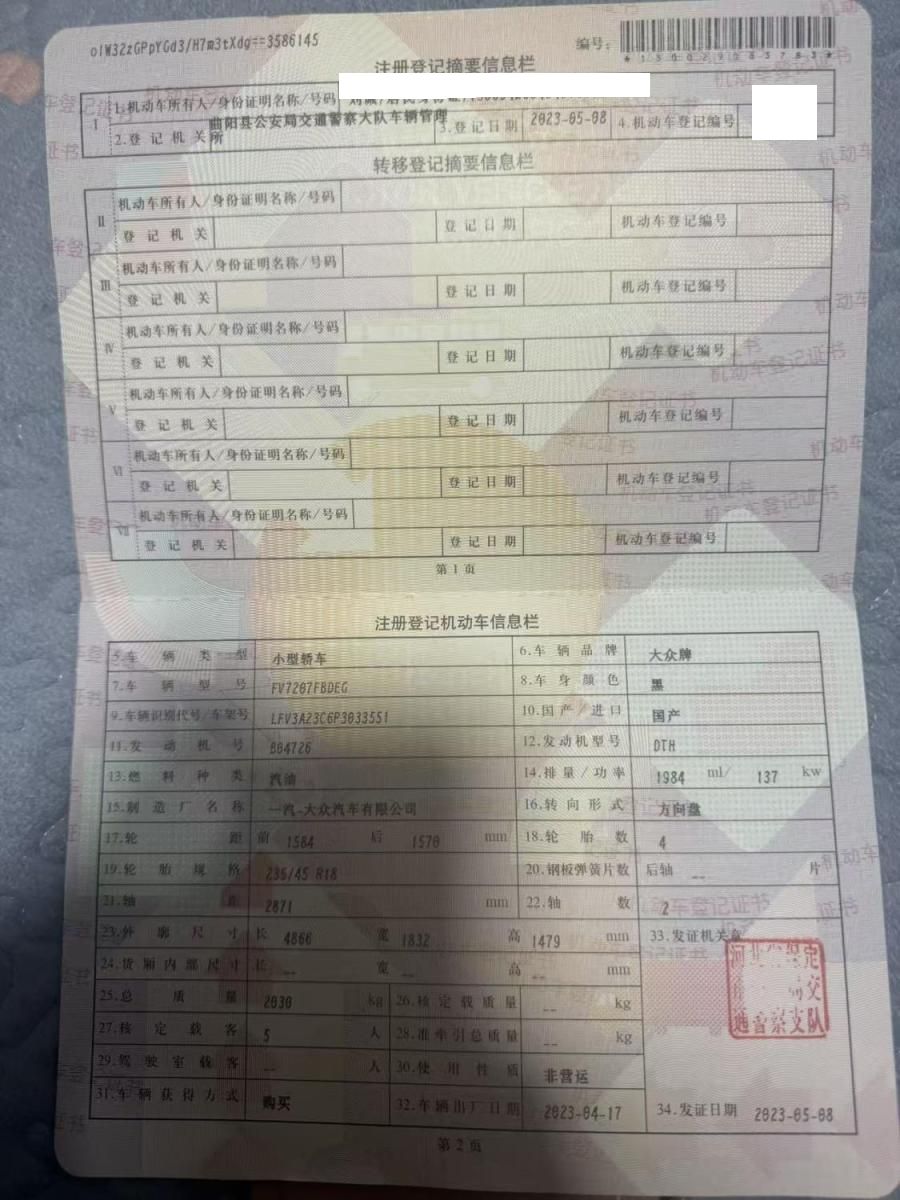 olW32zGPpYGd3/H7m3tXdg==3586145
编号:
注册登记摘要信息栏
I
1.机动车所有人/身份证明名称/号码
2.登记机关 曲阳县公安局交通警察大队车辆管理所 3.登记日期 2023-05-08 4.机动车登记编号
转移登记摘要信息栏
II
机动车所有人/身份证明名称/号码
登记机关 登记日期 机动车登记编号
III
机动车所有人/身份证明名称/号码
登记机关 登记日期 机动车登记编号
IV
机动车所有人/身份证明名称/号码
登记机关 登记日期 机动车登记编号
V
机动车所有人/身份证明名称/号码
登记机关 登记日期 机动车登记编号
VI
机动车所有人/身份证明名称/号码
登记机关 登记日期 机动车登记编号
VII
机动车所有人/身份证明名称/号码
登记机关 登记日期 机动车登记编号
第1页
注册登记机动车信息栏
5.车辆类型 小型轿车 6.车辆品牌 大众牌
7.车辆型号 FV7207FBDEG 8.车身颜色 黑
9.车辆识别代号/车架号 LFV3A23C6P3033551 10.国产/进口 国产
11.发动机号 B04726 12.发动机型号 DTH
13.燃料种类 汽油 14.排量/功率 1984 ml/ 137 kw
15.制造厂名称 一汽-大众汽车有限公司 16.转向形式 方向盘
17.轮距 前 1584 后 1570 mm 18.轮胎数 4
19.轮胎规格 235/45 R18 20.钢板弹簧片数 后轴 -- 片
21.轴距 2871 mm 22.轴数 2
23.外廓尺寸 长 4866 宽 1832 高 1479 mm 33.发证机关章
24.货厢内部尺寸 长 -- 宽 -- 高 -- mm
25.总质量 2030 kg 26.核定载质量 -- kg
27.核定载客 5 人 28.准牵引总质量 -- kg
29.驾驶室载客 -- 人 30.使用性质 非营运
31.车辆获得方式 购买 32.车辆出厂日期 2023-04-17 34.发证日期 2023-05-08
通警察支队
第2页